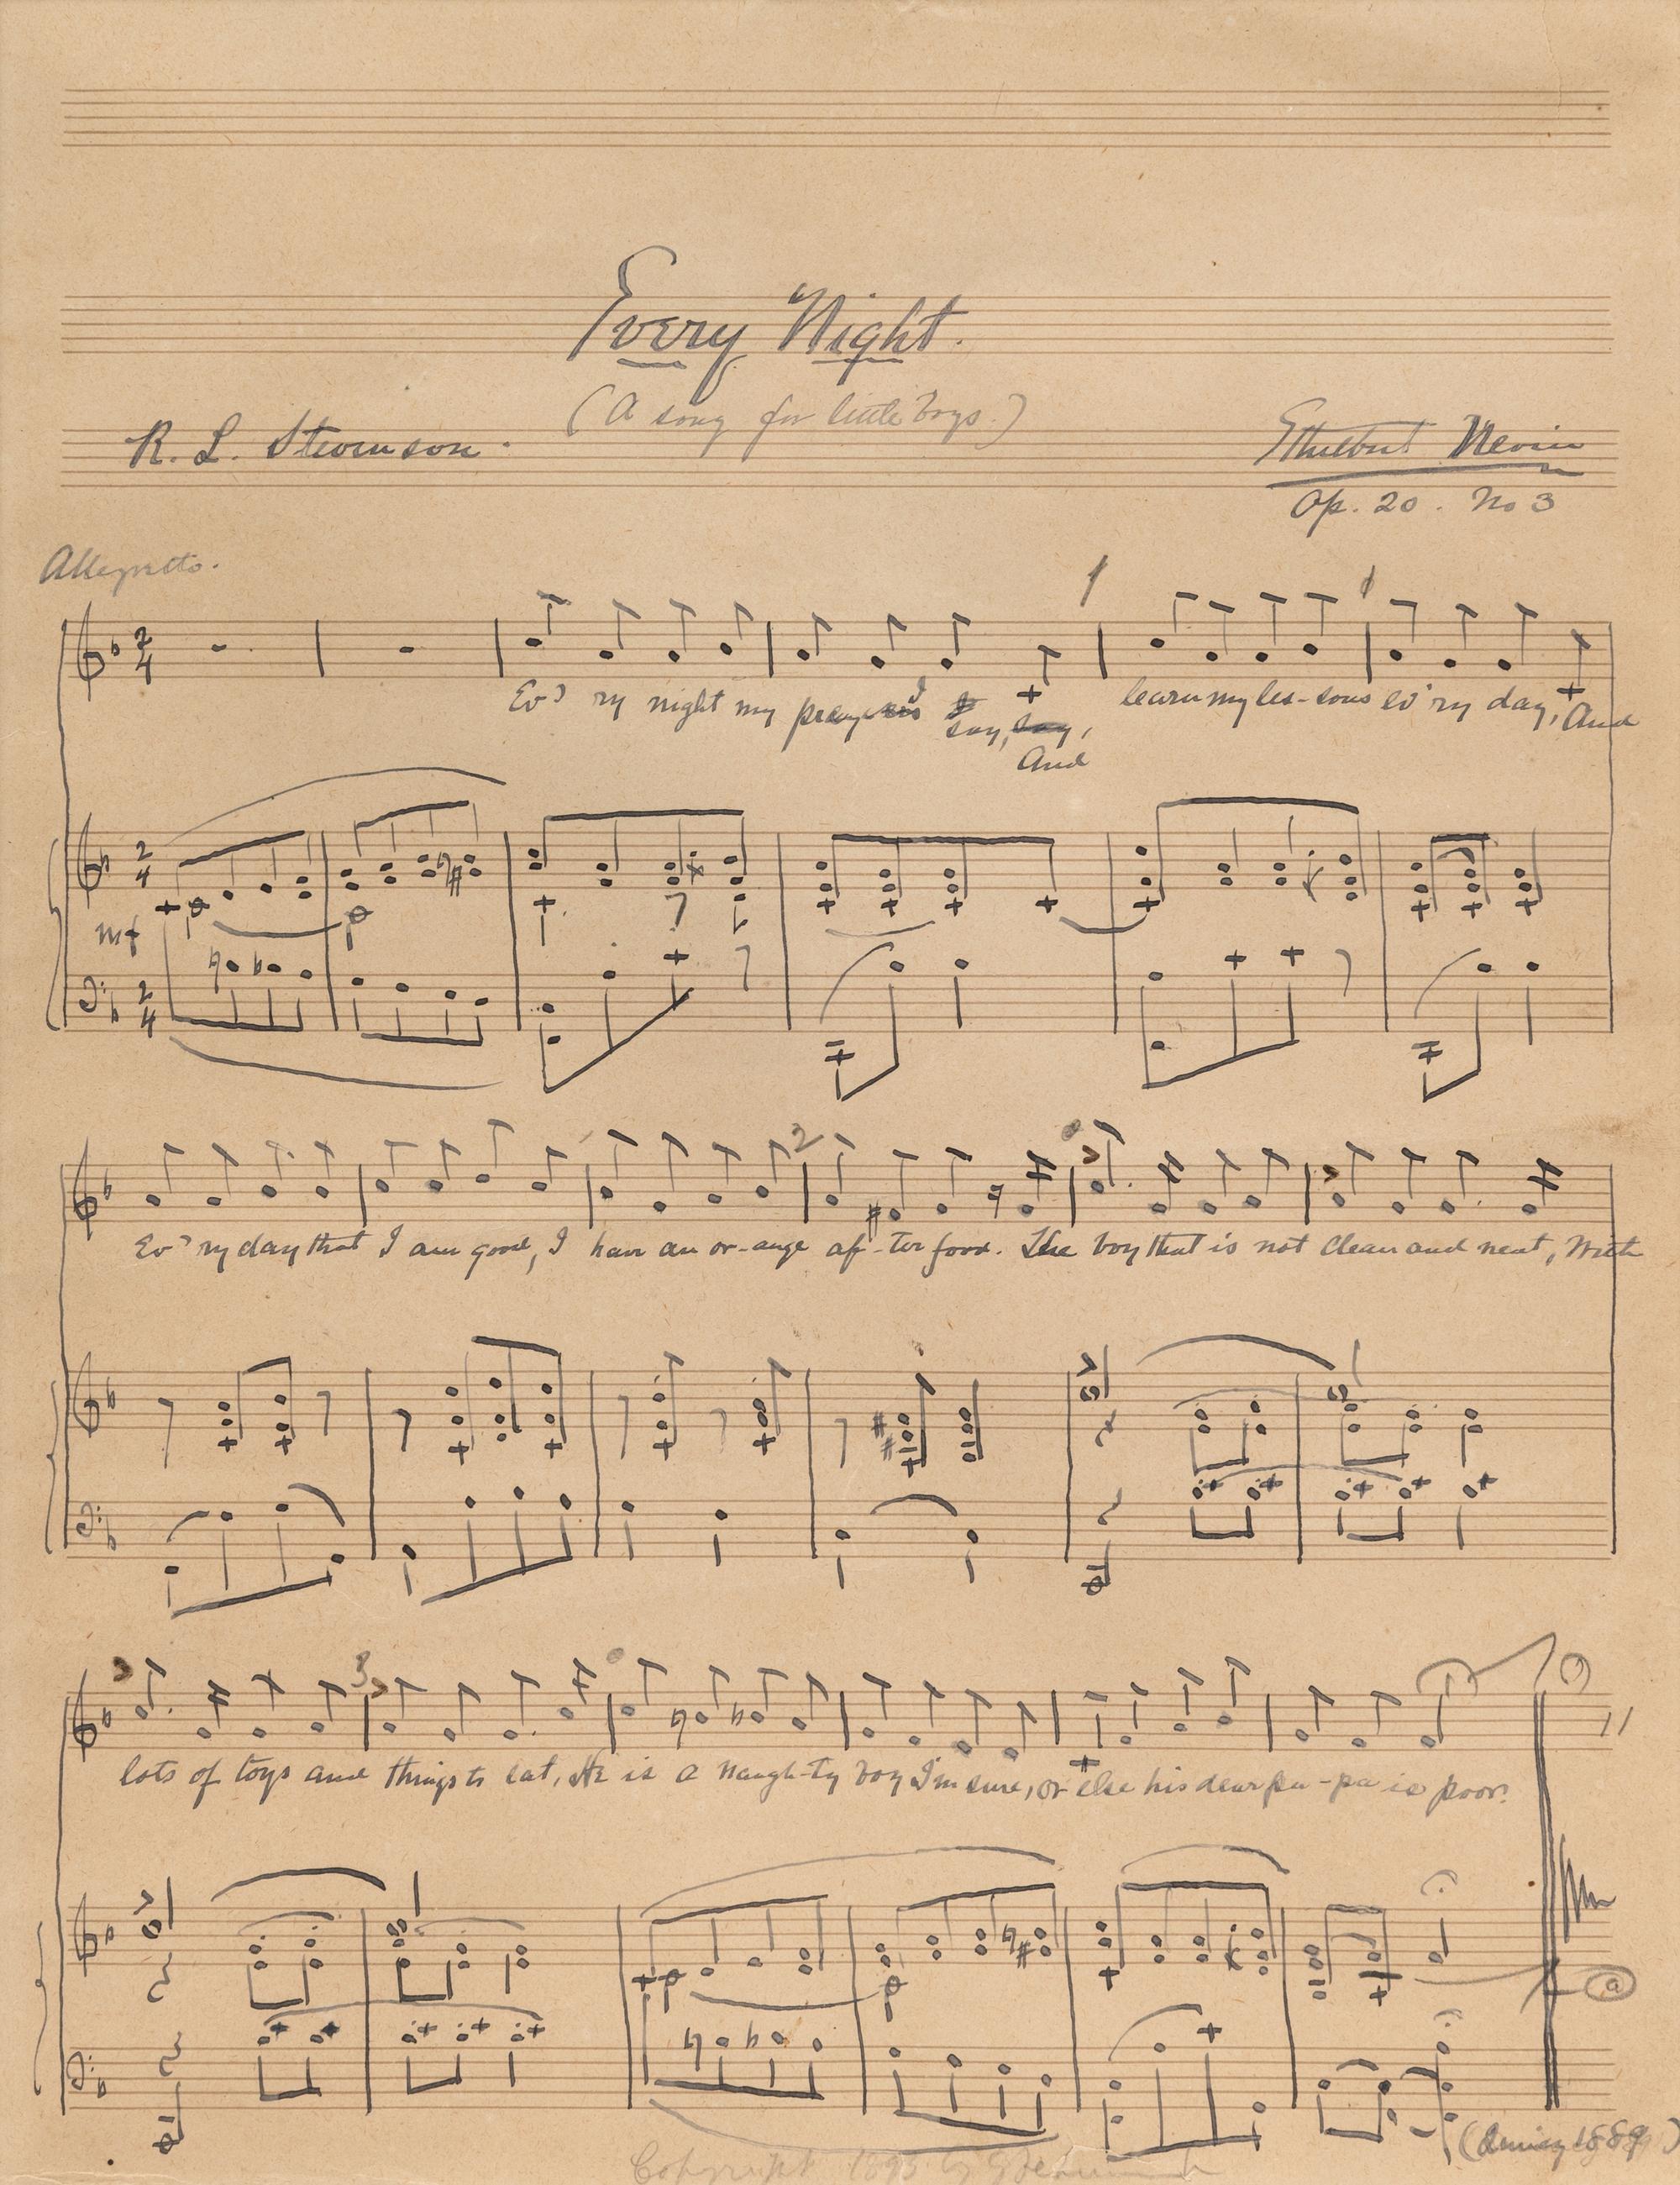 Every Night.
(A song for little boys.)
R. L. Stevenson.
Ethelbert Nevin
Op. 20. No 3
Allegretto.
1
2
4
Ev' ry night my prayers I say, say, learn my les-sons ev'ry day, And
And
2
4
mf
2
4
2
Ev'ry day that I am good, I have an or-ange af-ter food. The boy that is not clean and neat, With
3
lots of toys and things to eat, He is a naugh-ty boy I'm sure, or else his dear pa-pa is poor.
a
1889)
Copyright 1893 by G Schirmer